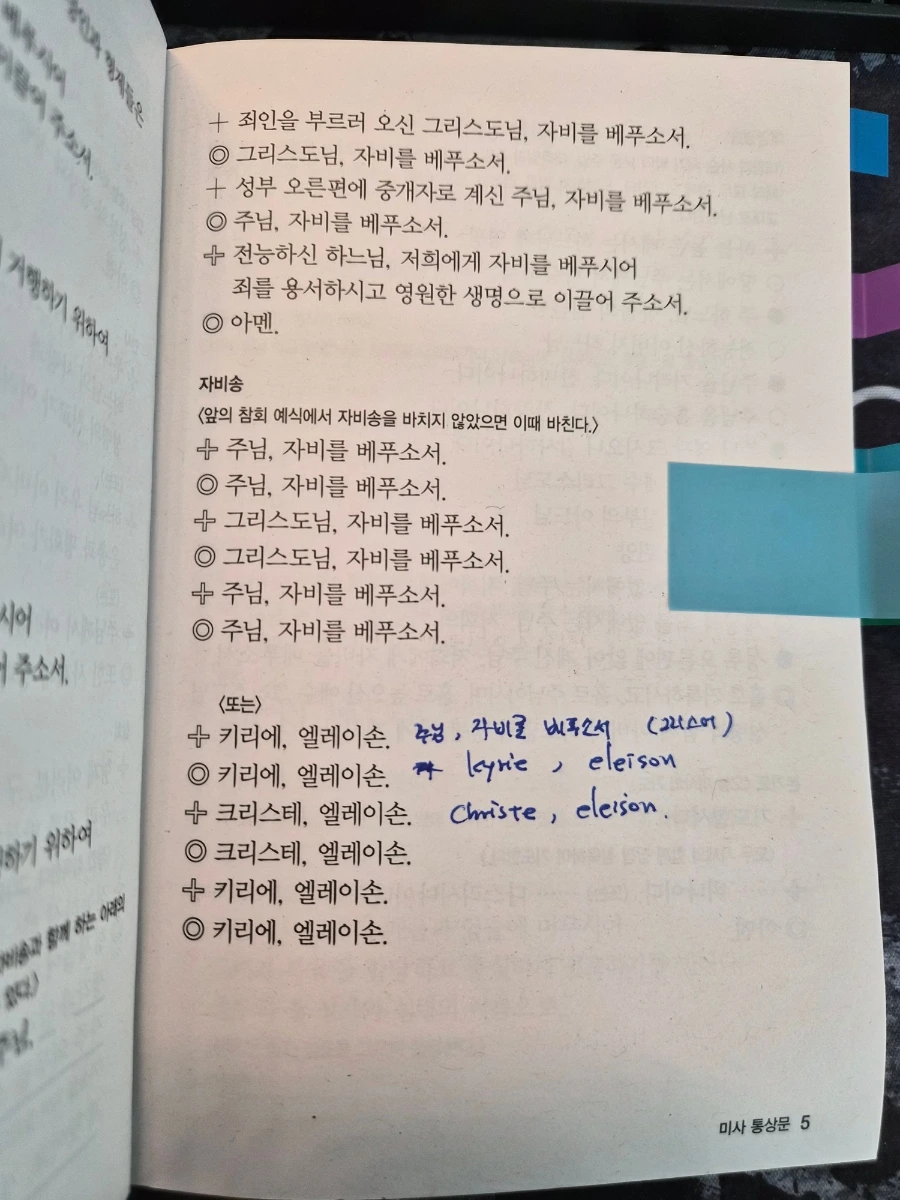 형제들은
베푸시어
주소서.
+ 죄인을 부르러 오신 그리스도님, 자비를 베푸소서.
◎ 그리스도님, 자비를 베푸소서.
+ 성부 오른편에 중개자로 계신 주님, 자비를 베푸소서.
◎ 주님, 자비를 베푸소서.
✚ 전능하신 하느님, 저희에게 자비를 베푸시어
죄를 용서하시고 영원한 생명으로 이끌어 주소서.
◎ 아멘.
거행하기 위하여
자비송
〈앞의 참회 예식에서 자비송을 바치지 않았으면 이때 바친다.〉
✚ 주님, 자비를 베푸소서.
◎ 주님, 자비를 베푸소서.
✚ 그리스도님, 자비를 베푸소서.
◎ 그리스도님, 자비를 베푸소서.
✚ 주님, 자비를 베푸소서.
◎ 주님, 자비를 베푸소서.
시어
주소서.
〈또는〉
✚ 키리에, 엘레이손. 주님, 자비를 베푸소서 (그리스어)
◎ 키리에, 엘레이손. kyrie, eleison
✚ 크리스테, 엘레이손. Christe, eleison.
◎ 크리스테, 엘레이손.
✚ 키리에, 엘레이손.
◎ 키리에, 엘레이손.
하기 위하여
함께 하는 아래의
있다.)
주님,
미사 통상문 5